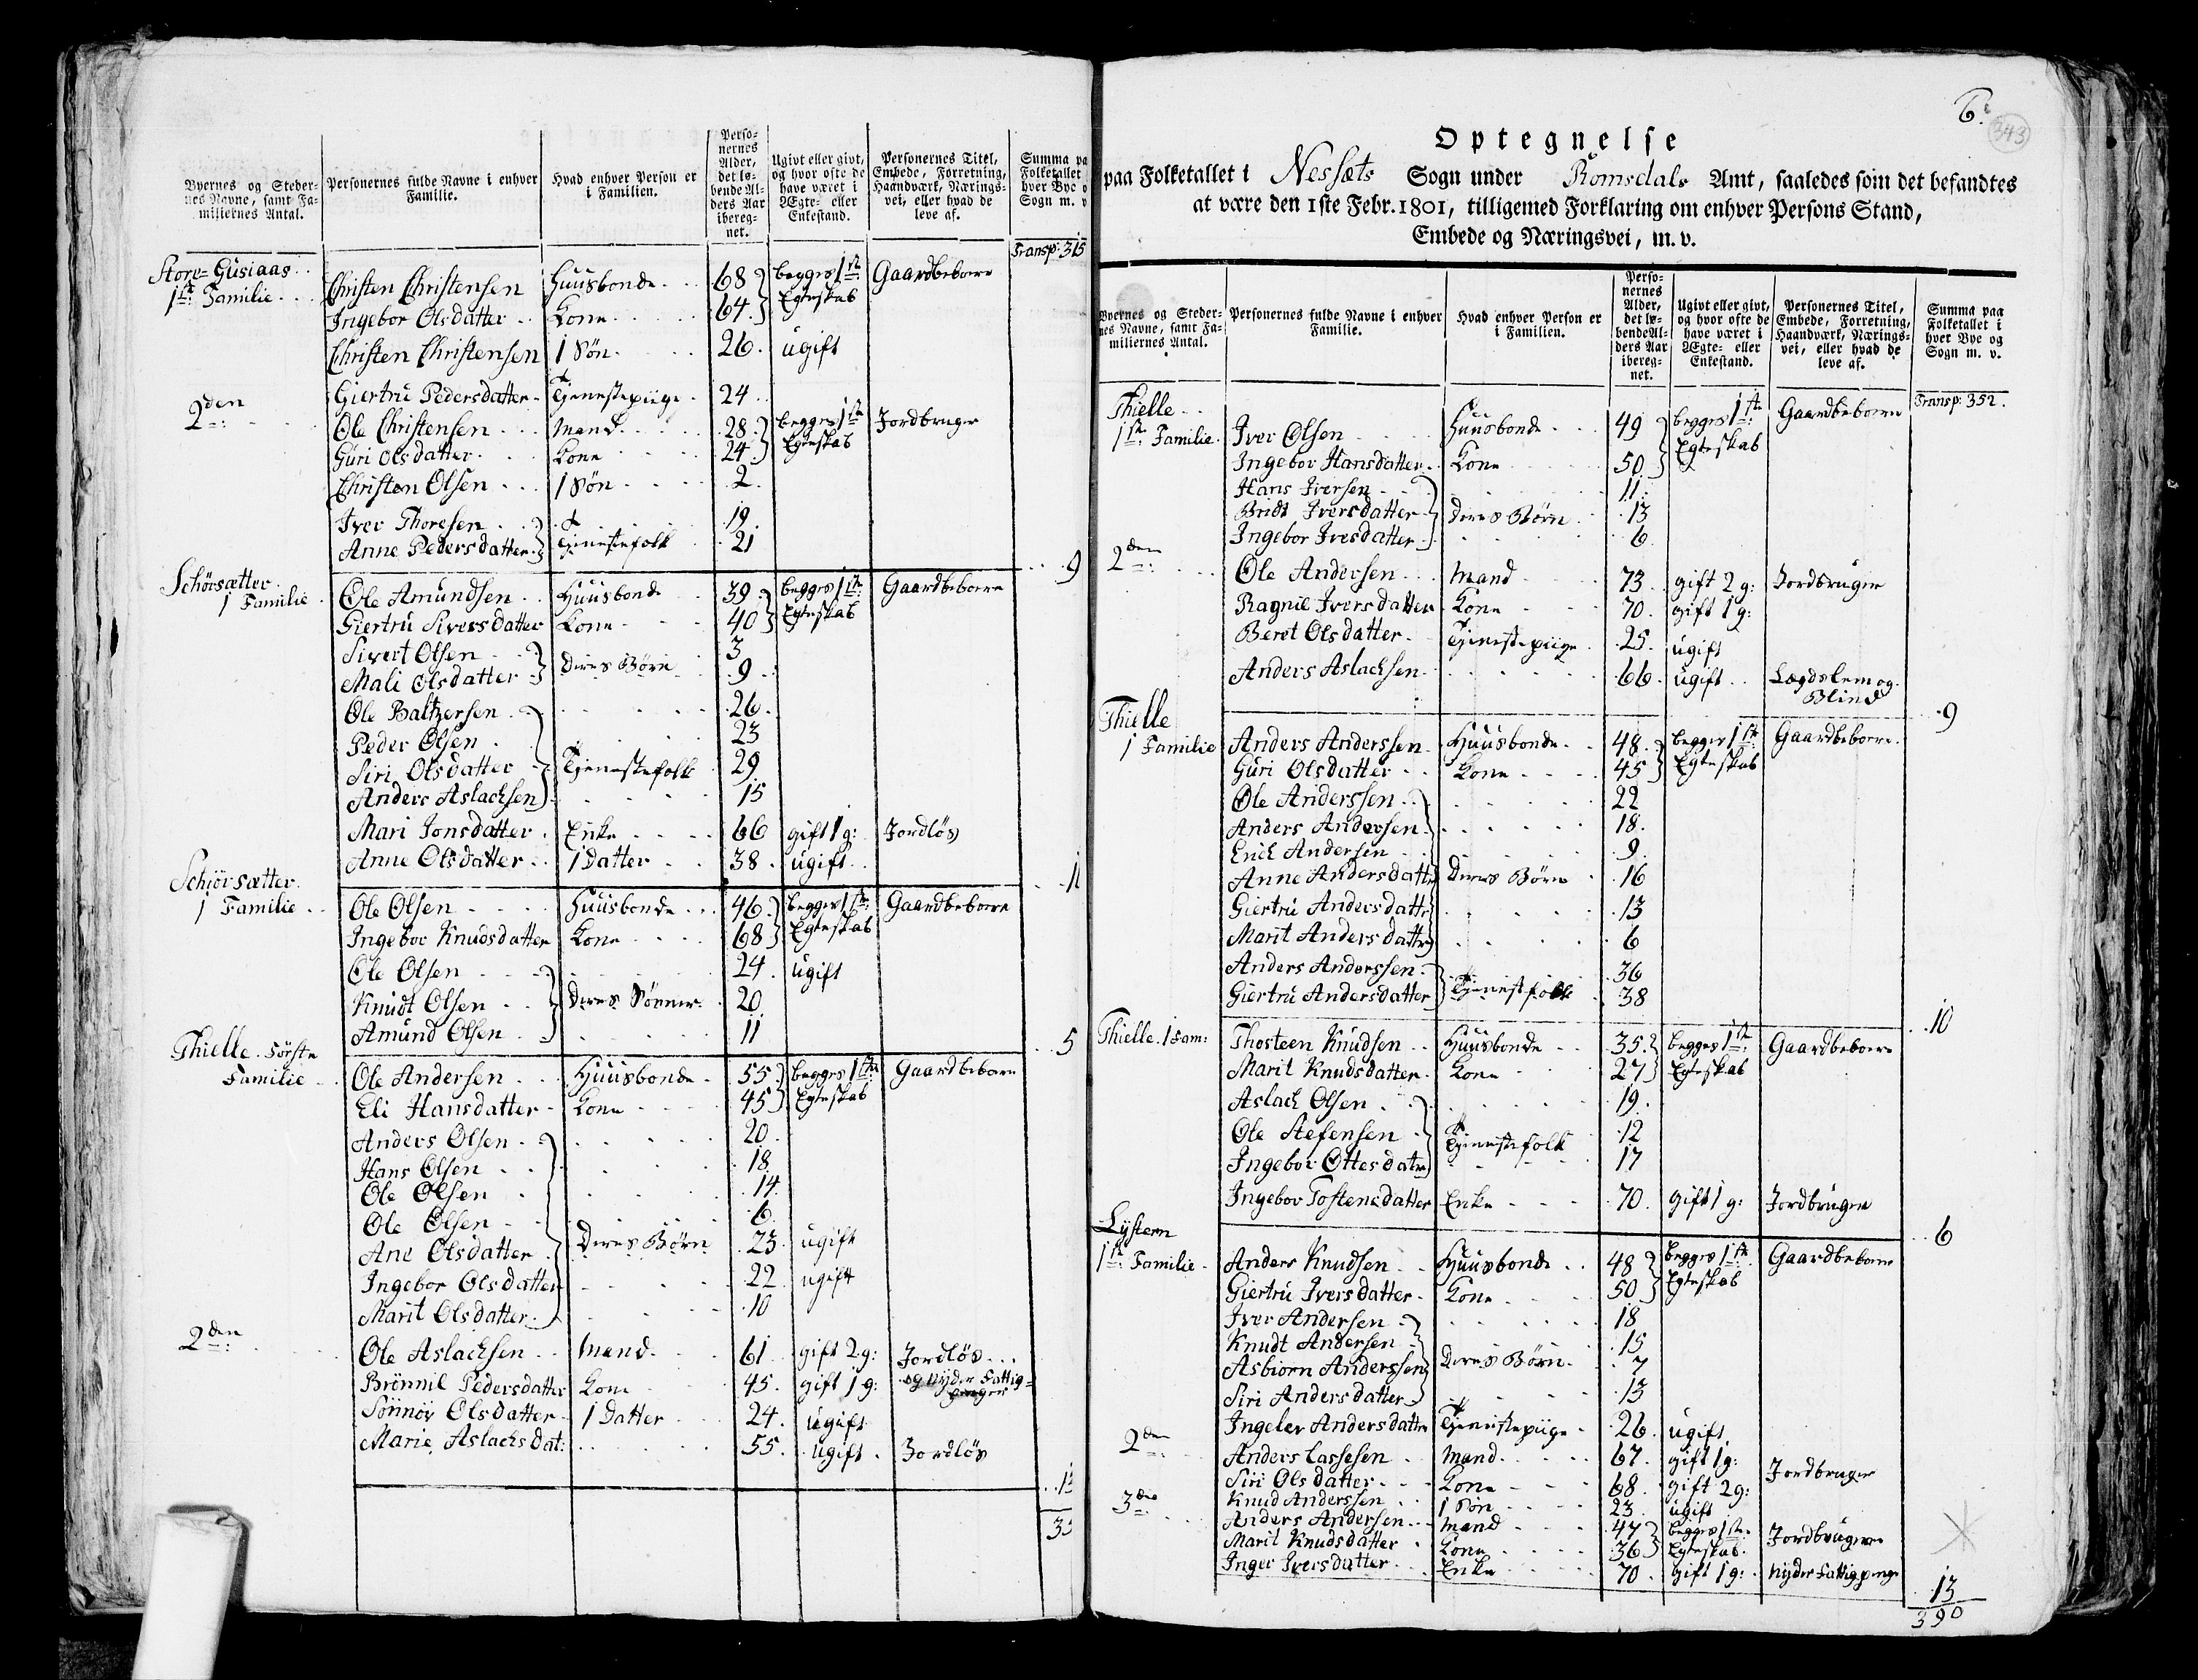 Byernes og Steder-
nes Navne, samt Fa-
miliernes Antal.
Personernes fulde Navne i enhver
Familie.
Hvad enhver Person er
i Familien.
Perso-
nernes
Alder,
det lø-
bende Al-
ders Aar
ibereg-
net.
Ugivt eller givt,
og hvor ofte de
have været i
Ægte- eller
Enkestand.
Personernes Titel,
Embede, Forretning,
Haandværk, Nærings-
vei, eller hvad de
leve af.
Summa pa
Folketallet
hver Bye o
Sogn m. v
Transp: 315
Store-Gusiaas
1ste Familie Christen Christensen Huusbonde 68 begges 1ste Gaardbeboere
Ingebor Olsdatter Kone 64 Egteskab
Christen Christensen 1 Søn 26 ugift
Giertru Pedersdatter Tjenestepiige 24
2den Ole Christensen Mand 28 begges 1ste Jordbruger
Guri Olsdatter Kone 24 Egteskab
Christen Olsen 1 Søn 2
Iver Thoresen 19
Anne Pedersdatter Tjenestefolk 21
9
Schörsætter
1 Familie Ole Amundsen Huusbonde 39 begges 1ste Gaardbeboere
Giertru Siversdatter Kone 40 Egteskab
Sivert Olsen 3
Mali Olsdatter Deres Børn 9
Ole Baltzersen 26
Peder Olsen 23
Siri Olsdatter Tjenestefolk 29
Anders Aslachsen 15
Mari Jonsdatter Enke 66 gift 1 g: Jordløs
Anne Olsdatter 1 Datter 38 ugift
11
Schiörsætter
1 Familie Ole Olsen Huusbonde 46 begges 1ste Gaardbeboere
Ingebor Knudsdatter Kone 68 Egteskab
Ole Olsen 24 ugift
Knudt Olsen Deres Sønner 20
Amund Olsen 11
5
Thielle Første
Familie Ole Andersen Huusbonde 55 begges 1ste Gaardbeboere
Eli Hansdatter Kone 45 Egteskab
Anders Olsen 20
Hans Olsen 18
Ole Olsen 14
Ole Olsen 6
Ane Olsdatter Deres Børn 23 ugift
Ingebor Olsdatter 22 ugift
Marit Olsdatter 10
2den Ole Aslachsen Mand 61 gift 2 g: Jordløs
Brönnil Pedersdatter Kone 45 gift 1 g: og nyder Fattig-
penger
Sönnöv Olsdatter 1 Datter 24 ugift
Marie Aslachsdat: 55 ugift Jordløs
6.
343
Optegnelse
paa Folketallet i Nessets Sogn under Romsdals Amt, saaledes som det befandtes
at være den 1ste Febr. 1801, tilligemed Forklaring om enhver Persons Stand,
Embede og Næringsvei, m. v.
Byernes og Steder-
nes Navne, samt Fa-
miliernes Antal.
Personernes fulde Navne i enhver
Familie.
Hvad enhver Person er
i Familien.
Perso-
nernes
Alder,
det lø-
bende Al-
ders Aar
ibereg-
net.
Ugivt eller givt,
og hvor ofte de
have været i
Ægte- eller
Enkestand.
Personernes Titel,
Embede, Forretning,
Haandværk, Nærings-
vei, eller hvad de
leve af.
Summa paa
Folketallet i
hver Bye og
Sogn m. v.
Transp: 352.
Thielle
1ste Familie Iver Olsen Huusbonde 49 begges 1ste Gaardbeboere
Ingebor Hansdatter Kone 50 Egteskab
Hans Iversen 11
Bridt Iversdatter Deres Børn 13
Ingebor Ivesdatter 6
2den Ole Andersen Mand 73 gift 2 g: Jordbruger
Ragnil Iversdatter Kone 70 gift 1 g:
Beret Olsdatter Tjenestepiige 25 ugift
Anders Aslachsen 66 ugift Lægdslem og
Blind
9
Thielle
1 Familie Anders Anderssen Huusbonde 48 begges 1ste Gaardbeboere
Guri Olsdatter Kone 45 Egteskab
Ole Anderssen 22
Anders Andersen 18
Erich Andersen 9
Anne Andersdatter Deres Børn 16
Giertru Andersdatter 13
Marit Andersdatter 6
Anders Anderssen 36
Giertru Andersdatter Tjenestfolk 38
10
Thielle 1 Fam: Thosteen Knudsen Huusbonde 35 begges 1ste Gaardbeboere
Marit Knudsdatter Kone 27 Egteskab
Aslach Olsen 19
Ole Stefensen Tjenestefolk 12
Ingebor Ottesdatr 17
Ingebor Tostensdatter Enke 70 gift 1 g: Jordbruger
6
Lystern
1ste Familie Anders Knudsen Huusbonde 48 begges 1ste Gaardbeboere
Giertru Iversdatter Kone 50 Egteskab
Iver Andersen 18
Knudt Andersen 15
Asbiorn Anderssen Deres Børn 7
Siri Andersdatter 13
Ingelev Andersdatter Tjenestepiige 26 ugift
2den Anders Lassesen Mand 67 gift 1 g: Jordbruger
Siri Olsdatter Kone 68 gift 2 g:
Knud Anderssen 1 Søn 23 ugift
3die Anders Andersen Mand 47 begges 1ste Jordbrugere
Marit Knudsdatter Kone 36 Egteskab
Inger Iversdatter Enke 70 gift 1 g: nyder Fattigpenge
13
390